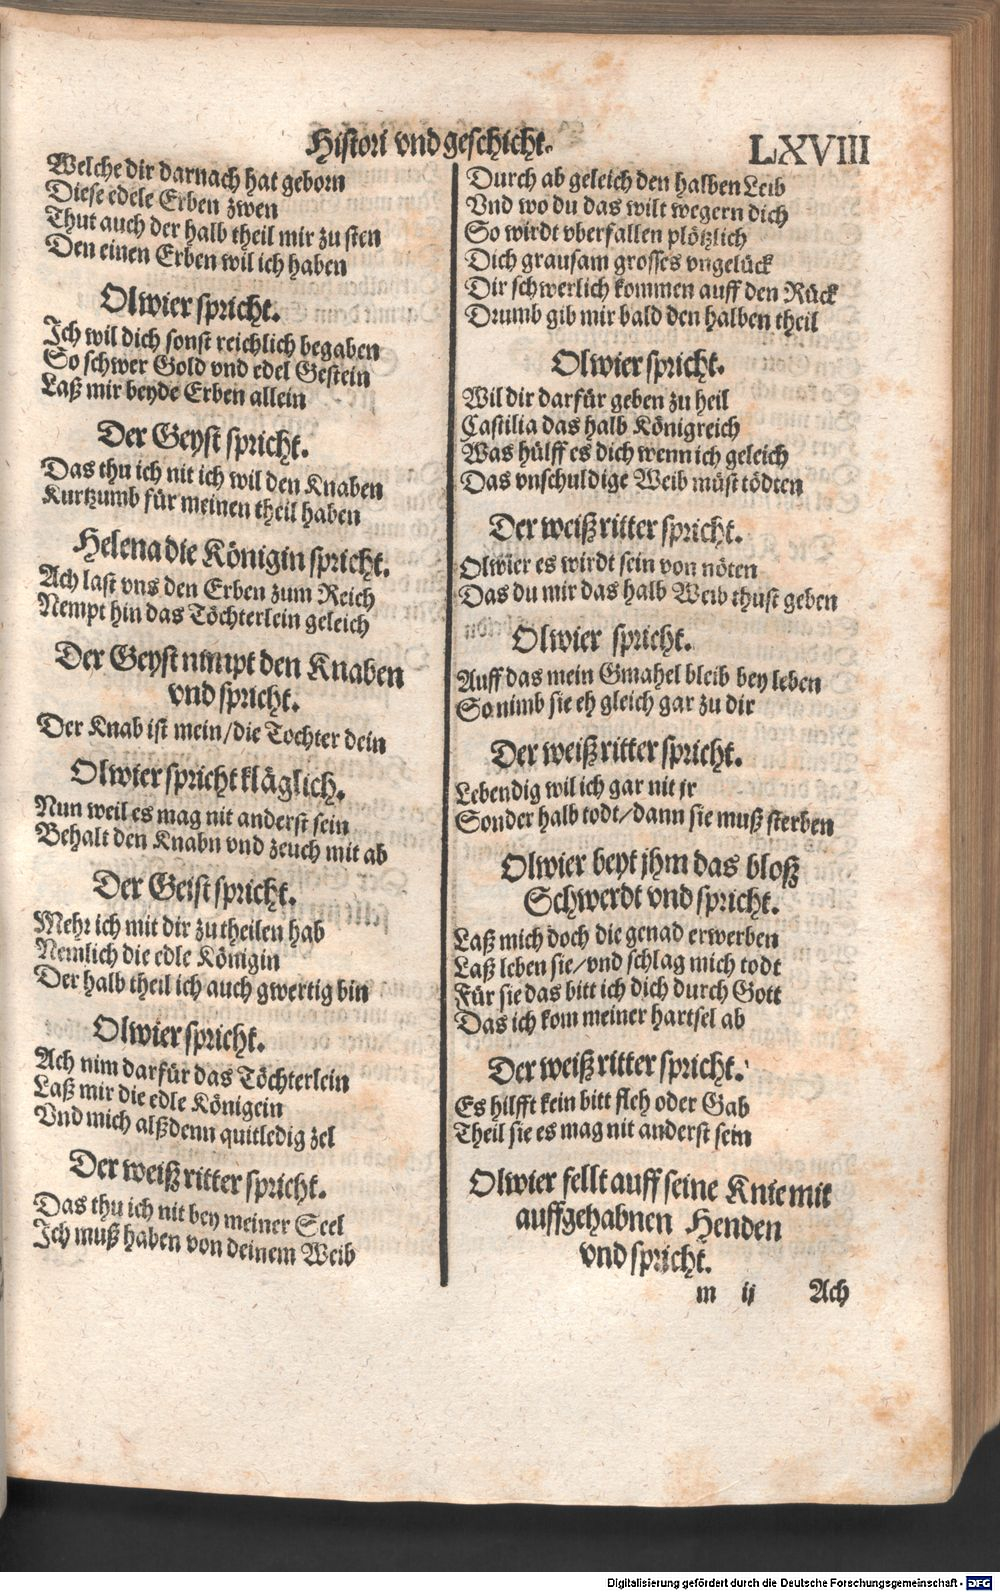 Histori vnd geschicht.
LXVIII
Welche dir darnach hat geborn
Diese edele Erben zwen
Thut auch der halb theil mir zu sten
Den einen Erben wil ich haben
Olwier spricht.
Ich wil dich sonst reichlich begaben
So schwer Gold vnd edel Gestein
Laß mir beyde Erben allein
Der Geyst spricht.
Das thu ich nit ich wil den Knaben
Kurtzumb für meinen theil haben
Helena die Königin spricht.
Ach last vns den Erben zum Reich
Nempt hin das Töchterlein geleich
Der Geyst nimpt den Knaben
vnd spricht.
Der Knab ist mein/die Tochter dein
Olwier spricht kläglich.
Nun weil es mag nit anderst sein
Behalt den Knabn vnd zeuch mit ab
Der Geist spricht.
Mehr ich mit dir zu theilen hab
Nemlich die edle Königin
Der halb theil ich auch gwertig bin
Olwier spricht.
Ach nim darfür das Töchterlein
Laß mir die edle Königein
Vnd mich alßdenn quitledig zel
Der weiß ritter spricht.
Das thu ich nit bey meiner Seel
Ich muß haben von deinem Weib
Durch ab geleich den halben Leib
Vnd wo du das wilt wegern dich
So wirdt vberfallen plötzlich
Dich grausam grosses vngelück
Dir schwerlich kommen auff den Rück
Drumb gib mir bald den halben theil
Olwier spricht.
Wil dir darfür geben zu heil
Castilia das halb Königreich
Was hülff es dich wenn ich geleich
Das vnschuldige Weib müst tödten
Der weiß ritter spricht.
Olwier es wirdt sein von nöten
Das du mir das halb Weib thust geben
Olwier spricht.
Auff das mein Gmahel bleib bey leben
So nimb sie eh gleich gar zu dir
Der weiß ritter spricht.
Lebendig wil ich gar nit jr
Sonder halb todt/dann sie muß sterben
Olwier beyt jhm das bloß
Schwerdt vnd spricht.
Laß mich doch die genad erwerben
Laß leben sie/vnd schlag mich todt
Für sie das bitt ich dich durch Gott
Das ich kom meiner hartsel ab
Der weiß ritter spricht.
Es hilfft kein bitt fleh oder Gab
Theil sie es mag nit anderst sein
Olwier fellt auff seine Knie mit
auffgehabnen Henden
vnd spricht.
m ij Ach
Digitalisierung gefördert durch die Deutsche Forschungsgemeinschaft - DFG